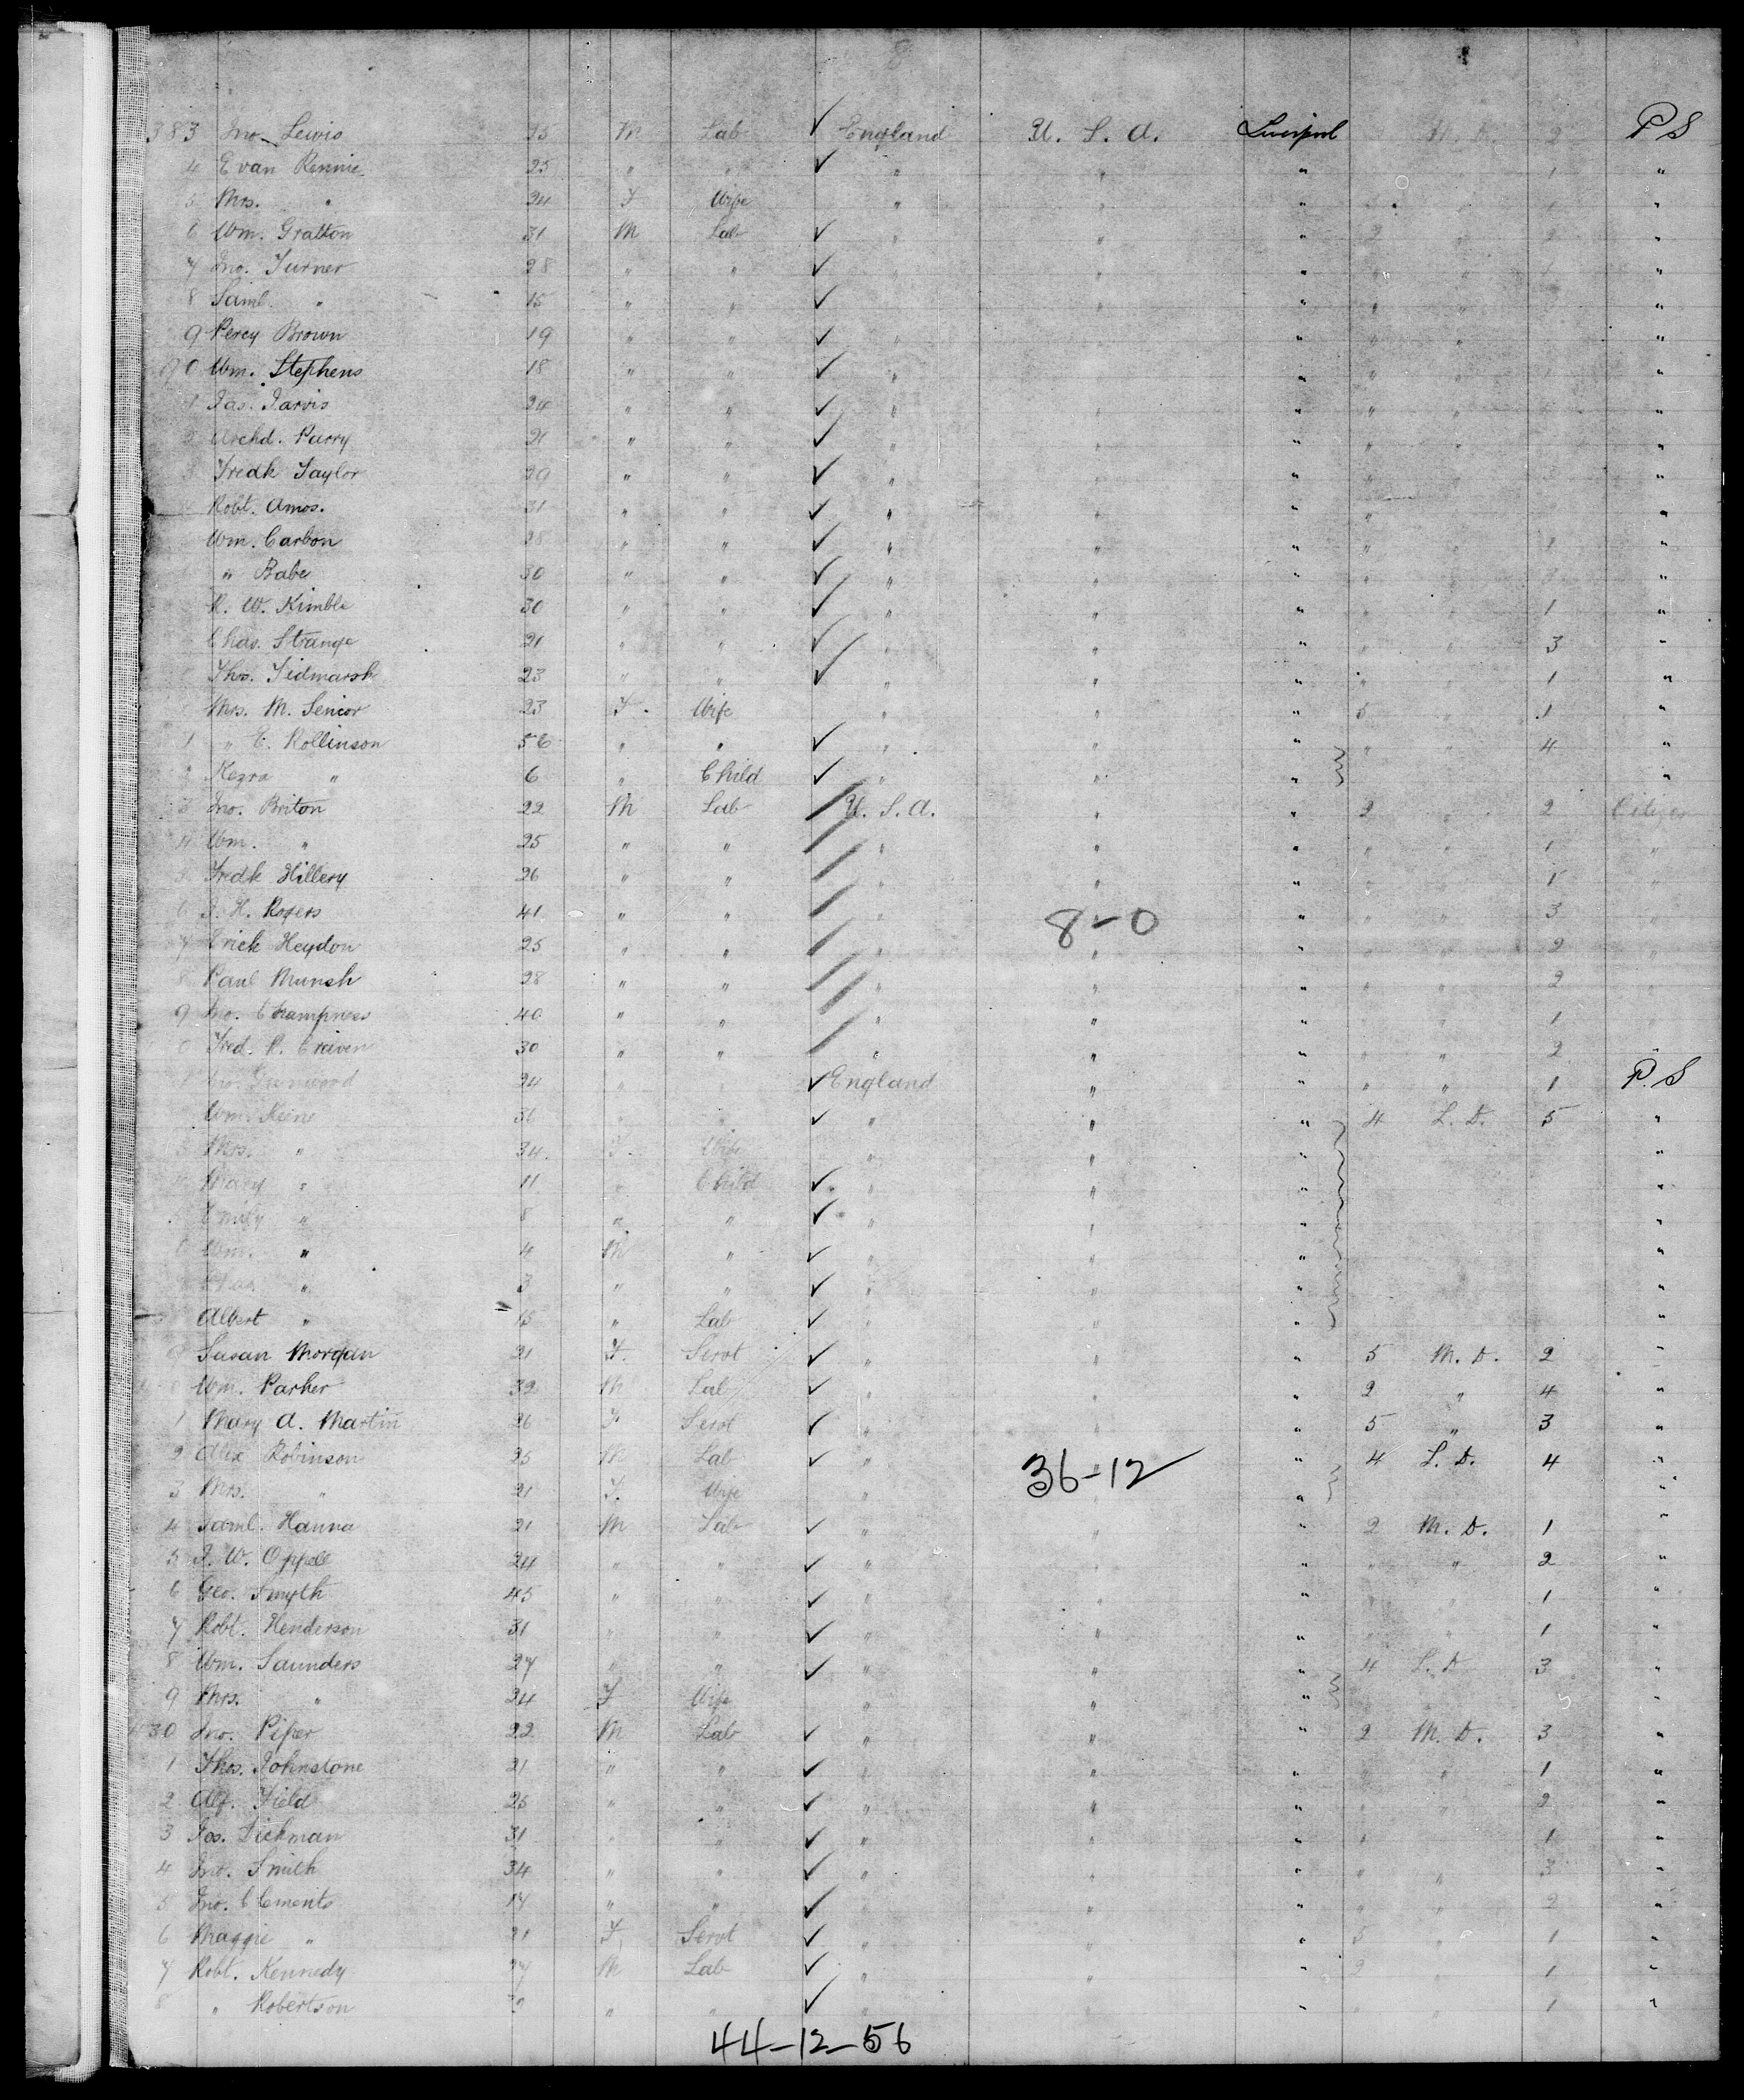 8
383 Jno. Lewis 25 M Lab England U. S. A. Liverpool M. D. 2 P S
4 Evan Rennie 25 " " " " " 1 "
5 Mrs. " 24 F Wife " " " 1 "
6 Wm. Gratton 31 M Lab " " " 2 " 2 "
7 Jno. Turner 28 " " " " " " " 1 "
8 Saml. " 15 " " " " " " " "
9 Percy Brown 19 " " " " " " " "
90 Wm. Stephens 18 " " " " " " " "
1 Jas. Jarvis 24 " " " " " " " "
2 Archd. Parry 21 " " " " " " " "
3 Fredk Taylor 20 " " " " " " " "
Robt. Amos. 31 " " " " " " "
Wm. Carbon 28 " " " " " " "
" Babe 30 " " " " " " "
R. W. Kimble 30 " " " " " " " 1 "
Chas. Strange 21 " " " " " " " 3 "
Thos. Tidmarsh 23 " " " " " " " 1 "
Mrs. M. Senior 23 F. Wife " " " 5 " 1 "
1 " E. Rollinson 56 " " " " " " " 4 "
2 Kezra " 6 " Child " " " "
3 Jno. Briton 22 M Lab U. S. A. " " 2 " 2 Citizen
4 Wm. " 25 " " " " " " " 1 "
5 Fredk Hillery 26 " " " " " " " 1 "
6 J. H. Rogers 41 " " " 8-0 " " " 3 "
7 Erick Heydon 25 " " " " " " " 2 "
8 Paul Munsh 28 " " " " " " " 2 "
9 Jno. Champness 40 " " " " " " " 1 "
0 Fred. R. Craven 30 " " " " " " " 2 "
1 Jno. Greenwood 24 " " England " " " " 1 P. S
Wm. Keine 36 " " " " " 4 L. D. 5 "
3 Mrs. " 34 F. Wife " " " "
4 Mary " 11 " Child " " " "
Emily " 8 " " " " " "
6 Wm. " 4 M " " " " "
" 3 " " " " " "
Albert " 15 " Lab " " " "
9 Susan Morgan 21 F. Servt " " " 5 M. D. 2 "
0 Wm. Parker 32 M Lab " " " 2 " 4 "
1 Mary A. Martin 26 F. Servt " " " 5 " 3 "
2 Alex Robinson 25 M Lab " " " 4 L. D. 4 "
36-12
3 Mrs. " 21 F. Wife " " " "
4 Saml. Hanna 21 M Lab " " " 2 M. D. 1 "
5 J. W. Oppell 24 " " " " " " " 2 "
6 Geo. Smyth 45 " " " " " " " 1 "
7 Robt. Henderson 31 " " " " " " " 1 "
8 Wm. Saunders 27 " " " " " 4 L. D 3 "
9 Mrs. " 24 F Wife " " " "
430 Jno. Piper 22 M Lab " " " 2 M. D. 3 "
1 Thos. Johnstone 21 " " " " " " " 1 "
2 Alf. Field 25 " " " " " " " 2 "
3 Jos. Dickman 31 " " " " " " " 1 "
4 Jno. Smith 34 " " " " " " " 3 "
5 Jno. Clements 17 " " " " " " " 2 "
6 Maggie " 21 F. Servt " " " 5 " 1 "
7 Robt. Kennedy 27 M Lab " " " 2 " 1 "
8 " Robertson " " " " " " " 1 "
44-12-56